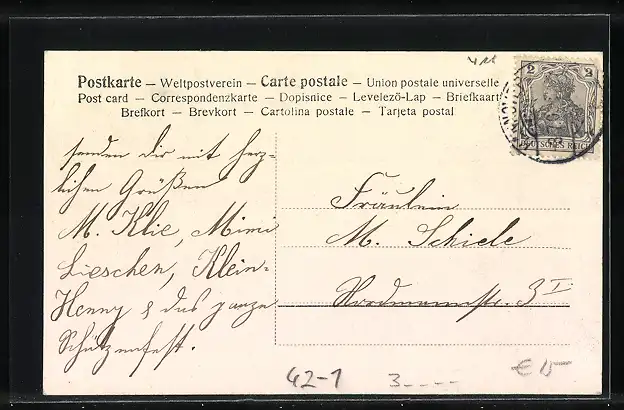 Postkarte – Weltpostverein – Carte postale – Union postale universelle
Post card – Correspondenzkarte – Dopisnice – Levelező-Lap – Briefkaart
Brefkort – Brevkort – Cartolina postale – Tarjeta postal
2 2
DEUTSCHES REICH
senden dir mit herz-
lichen Grüßen
M. Klie, Mimi
Lieschen, Klein-
Henny & das ganze
Schützenfest.
Fräulein
M. Schiele
Nordmannstr. 3 I
42-1
3----
€ 15